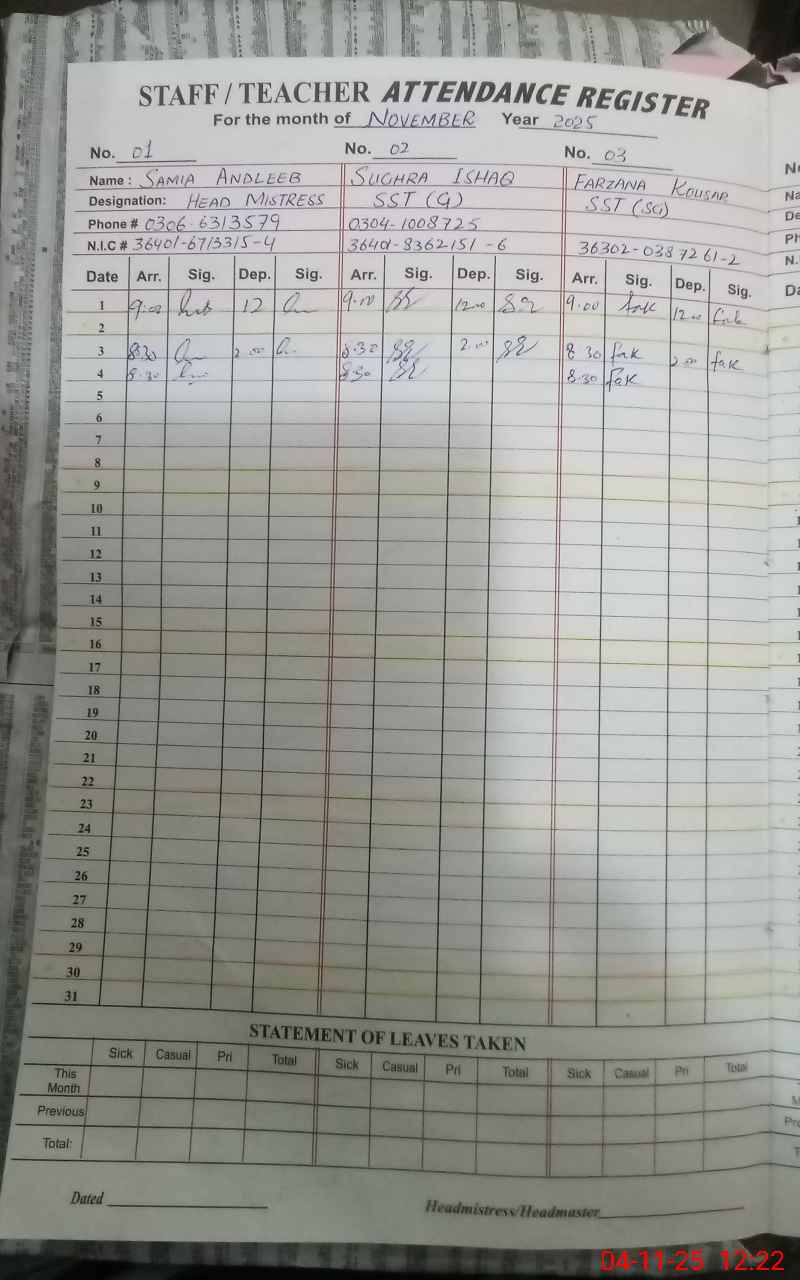 STAFF / TEACHER ATTENDANCE REGISTER
For the month of NOVEMBER Year 2025
No. 01 No. 02 No. 03
Name : SAMIA ANDLEEB SUGHRA ISHAQ FARZANA KOUSAR
Designation: HEAD MISTRESS SST (G) SST (SG)
Phone # 0306-6313579 0304-1008725
N.I.C # 36401-6713315-4 36401-8362151-6 36302-0387261-2
Date Arr. Sig. Dep. Sig. Arr. Sig. Dep. Sig. Arr. Sig. Dep. Sig.
1 9:00 12 9.00 12.00 9.00 12.00
2
3 8:30 2.00 8.30 2.00 8 30 fak 2.00 fak
4 8.30 8:30 8:30 fak
5
6
7
8
9
10
11
12
13
14
15
16
17
18
19
20
21
22
23
24
25
26
27
28
29
30
31
STATEMENT OF LEAVES TAKEN
Sick Casual Pri Total Sick Casual Pri Total Sick Casual Pri Total
This
Month
Previous
Total:
Dated Headmistress/Headmaster
04-11-25 12:22